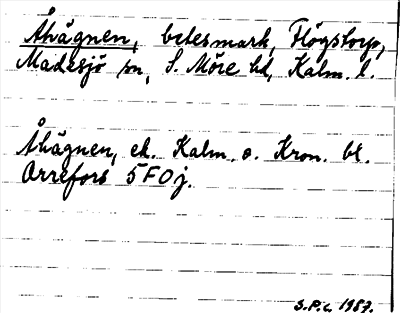 Åhägnen, betesmark, Flögstorp,
Madesjö sn, S. Möre hd, Kalm. l.
Åhägnen, ek. Kalm. o. Kron. bl.
Orrefors 5F0j.
S.P.C. 1987.